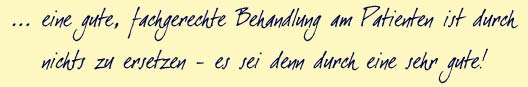 ... eine gute, fachgerechte Behandlung am Patienten ist durch
nichts zu ersetzen - es sei denn durch eine sehr gute!